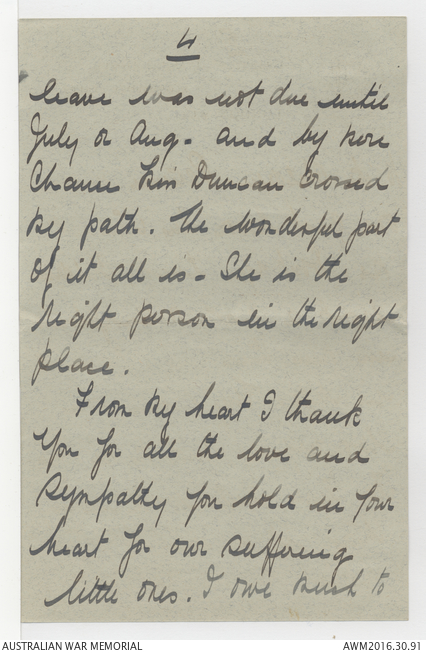 4
leave was not due until
July or Aug - and by pure
Chance Miss Duncan crossed
my path. The wonderful part
of it all is - She is the
right person in the right
place.
From my heart I thank
you for all the love and
sympathy you hold in your
heart for our suffering
little ones. I owe much to
AUSTRALIAN WAR MEMORIAL
AWM2016.30.91